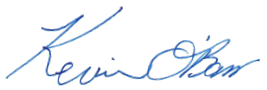 Kevin O'Barr